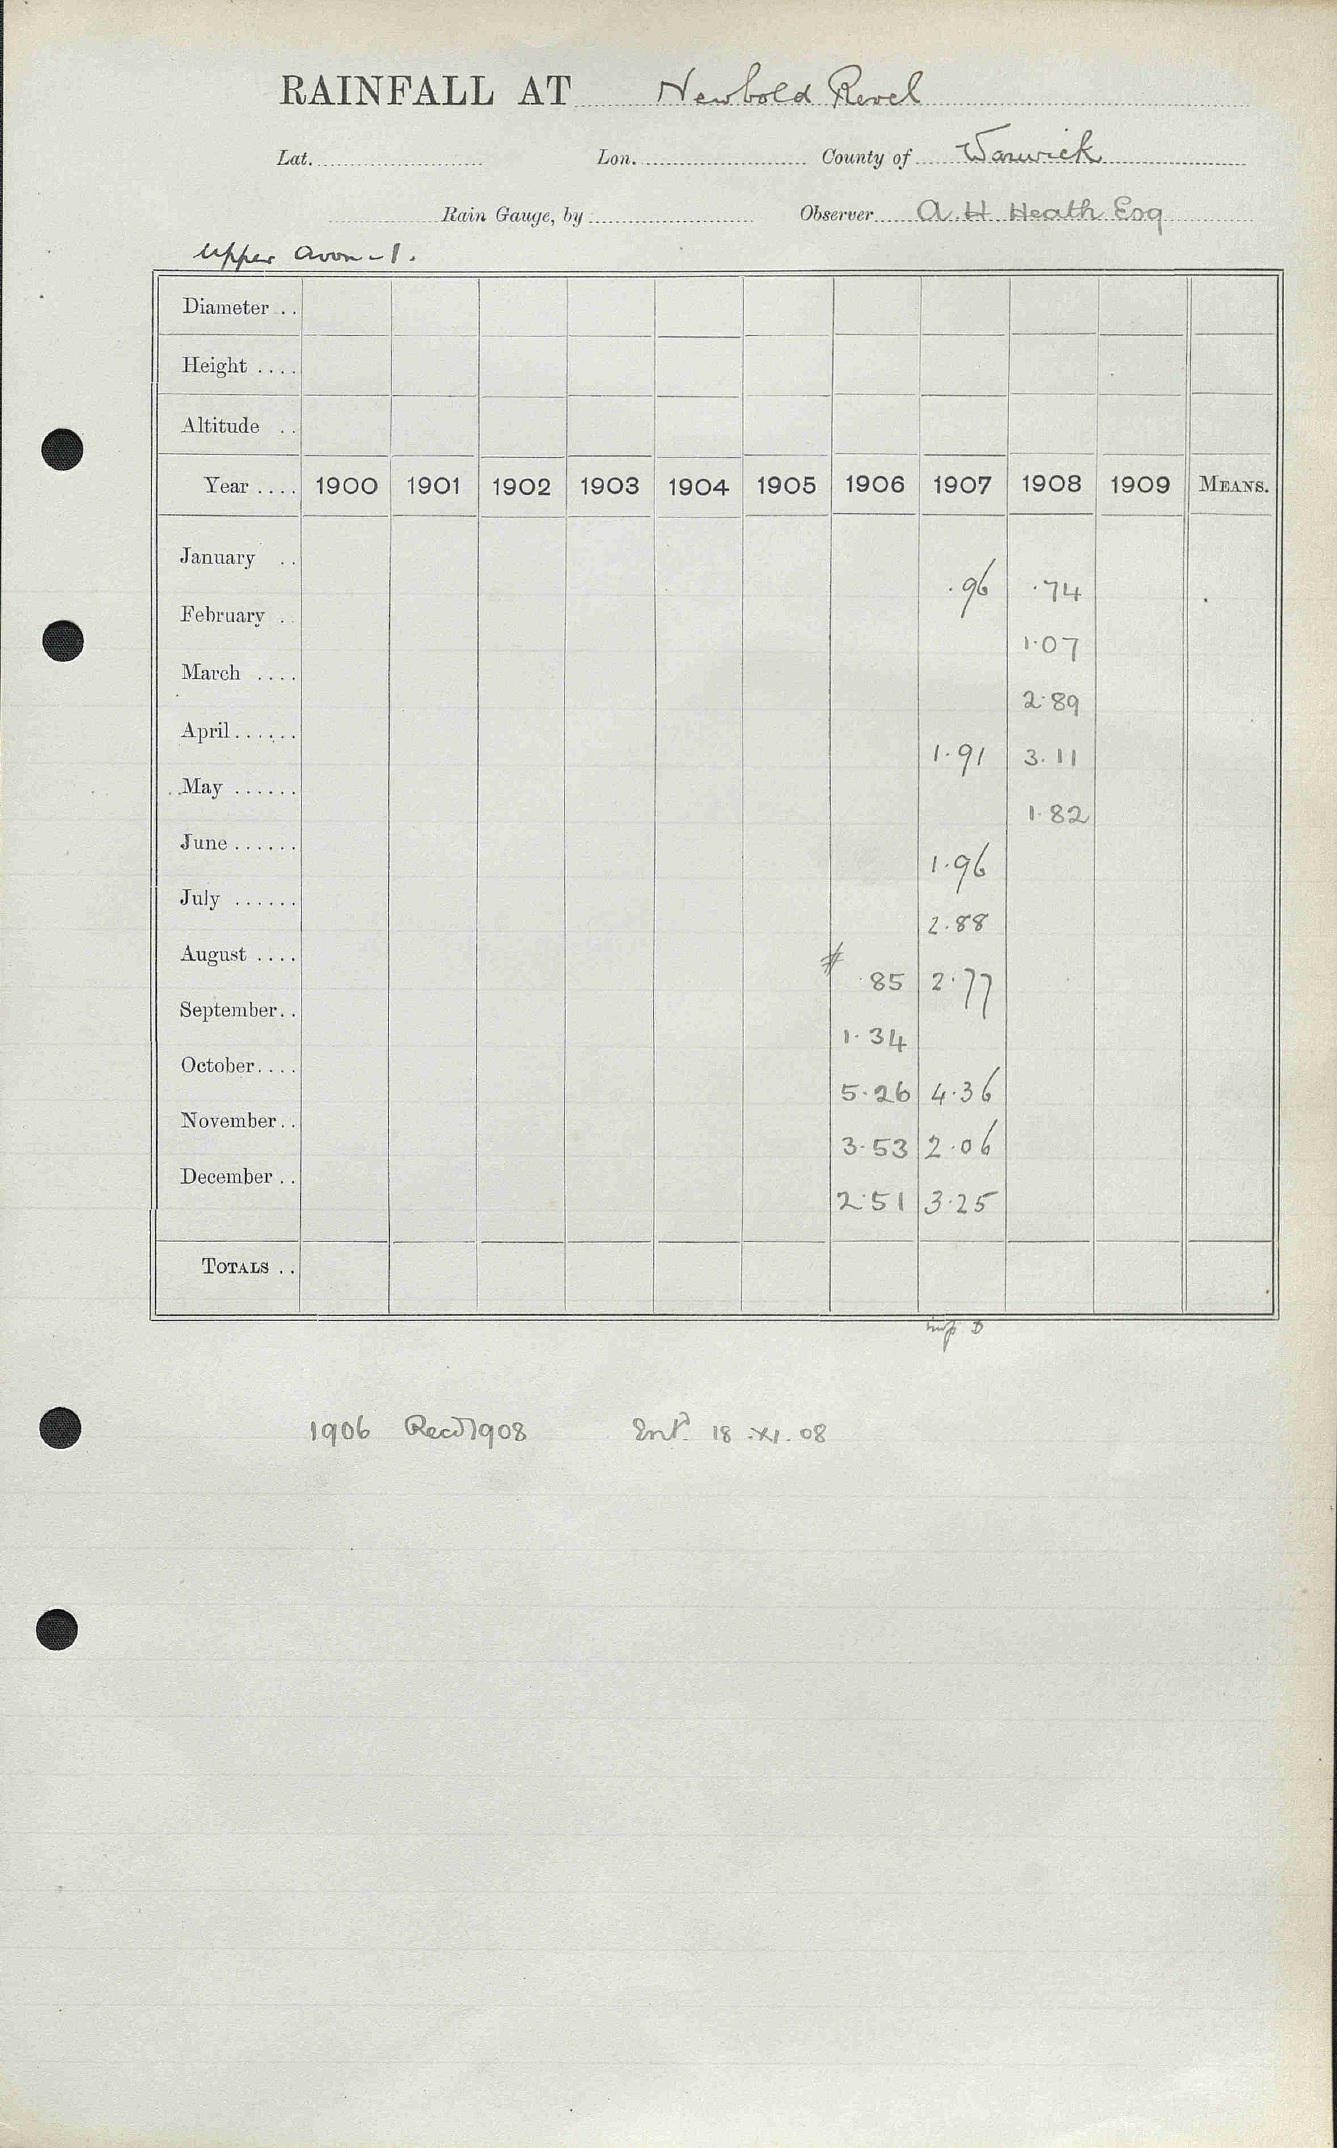 RAINFALL AT Newbold Revel
Lat. Lon. County of Warwick
Rain Gauge, by Observer A. H. Heath Esq
Upper Avon - 1.
Diameter . .
Height . . . .
Altitude . .
Year . . . . 1900 1901 1902 1903 1904 1905 1906 1907 1908 1909 MEANS.
January . .
.96 .74
February . .
1.07
March . . . .
2.89
April . . . . . .
1.91 3.11
May . . . . . .
1.82
June . . . . . .
1.96
July . . . . . .
2.88
August . . . .
# .85 2.77
September . .
1.34
October . . . .
5.26 4.36
November . .
3.53 2.06
December . .
2.51 3.25
TOTALS . .
D
1906 Recd 1908 Entd. 18.XI.08